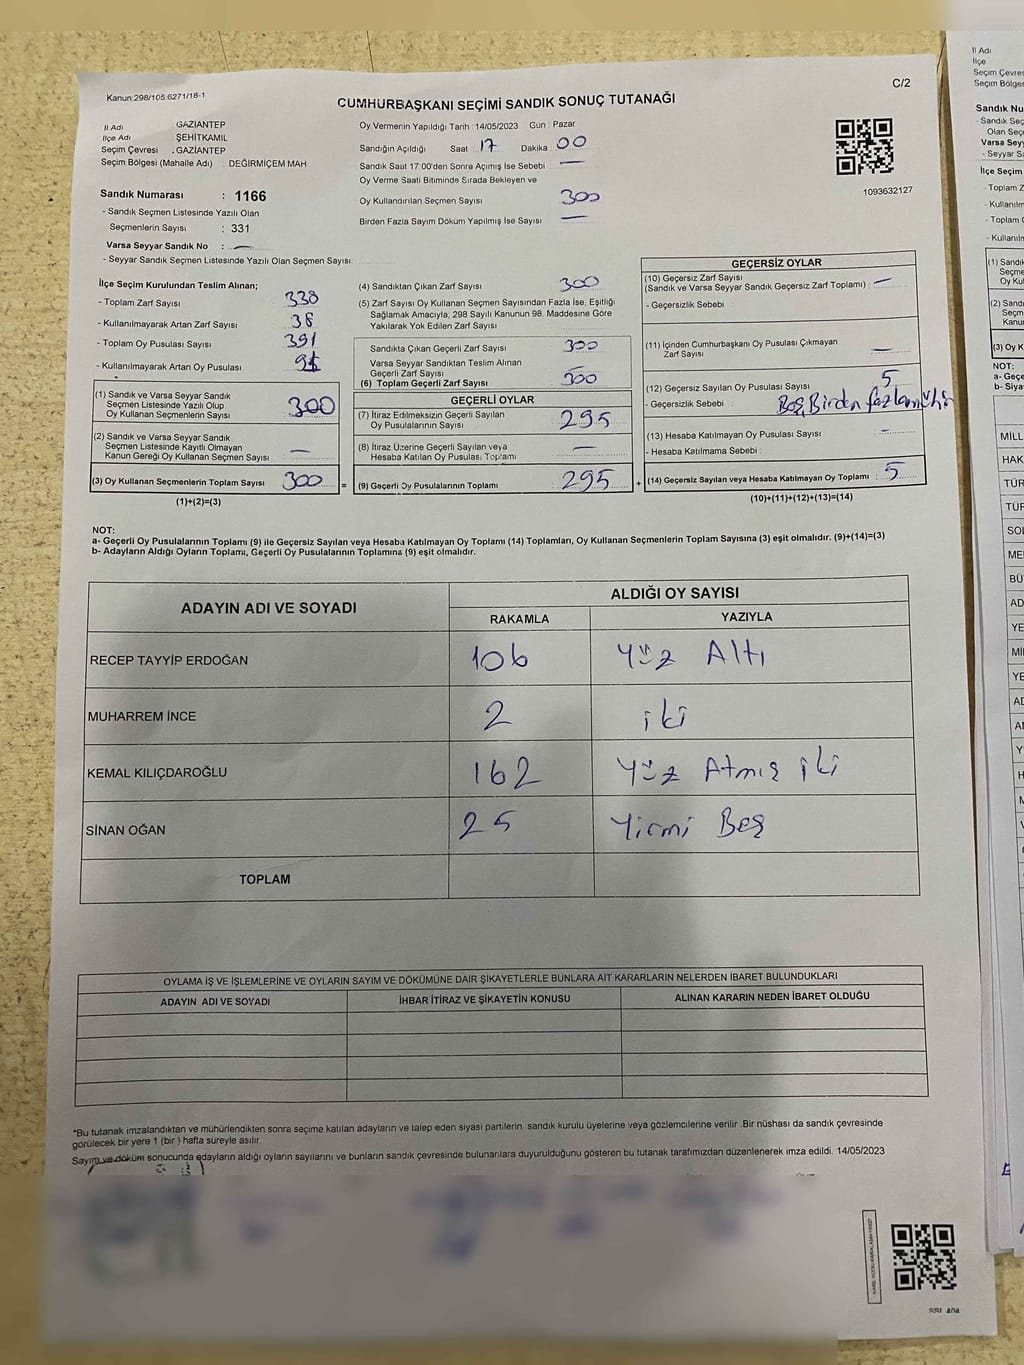 Kanun:298/105:6271/18-1
C/2
CUMHURBAŞKANI SEÇİMİ SANDIK SONUÇ TUTANAĞI
İl Adı : GAZİANTEP
İlçe Adı : ŞEHİTKAMİL
Seçim Çevresi : GAZİANTEP
Seçim Bölgesi (Mahalle Adı) : DEĞİRMİÇEM MAH
Sandık Numarası : 1166
- Sandık Seçmen Listesinde Yazılı Olan
Seçmenlerin Sayısı : 331
Varsa Seyyar Sandık No : —
- Seyyar Sandık Seçmen Listesinde Yazılı Olan Seçmen Sayısı
Oy Vermenin Yapıldığı Tarih : 14/05/2023 Gün : Pazar
Sandığın Açıldığı Saat 17 Dakika 00
Sandık Saat 17:00'den Sonra Açımış İse Sebebi —
Oy Verme Saati Bitiminde Sırada Bekleyen ve
Oy Kullandırılan Seçmen Sayısı 300
Birden Fazla Sayım Döküm Yapılmış İse Sayısı —
1093632127
İlçe Seçim Kurulundan Teslim Alınan;
- Toplam Zarf Sayısı 338
- Kullanılmayarak Artan Zarf Sayısı 38
- Toplam Oy Pusulası Sayısı 391
- Kullanılmayarak Artan Oy Pusulası
(1) Sandık ve Varsa Seyyar Sandık
Seçmen Listesinde Yazılı Olup
Oy Kullanan Seçmenlerin Sayısı 300
(2) Sandık ve Varsa Seyyar Sandık
Seçmen Listesinde Kayıtlı Olmayan
Kanun Gereği Oy Kullanan Seçmen Sayısı —
(3) Oy Kullanan Seçmenlerin Toplam Sayısı 300 =
(1)+(2)=(3)
(4) Sandıktan Çıkan Zarf Sayısı 300
(5) Zarf Sayısı Oy Kullanan Seçmen Sayısından Fazla İse, Eşitliği
Sağlamak Amacıyla; 298 Sayılı Kanunun 98. Maddesine Göre
Yakılarak Yok Edilen Zarf Sayısı
Sandıkta Çıkan Geçerli Zarf Sayısı 300
Varsa Seyyar Sandıktan Teslim Alınan
Geçerli Zarf Sayısı
(6) Toplam Geçerli Zarf Sayısı 300
GEÇERLİ OYLAR
(7) İtiraz Edilmeksizin Geçerli Sayılan
Oy Pusulalarının Sayısı 295
(8) İtiraz Üzerine Geçerli Sayılan veya
Hesaba Katılan Oy Pusulası Toplamı —
(9) Geçerli Oy Pusulalarının Toplamı 295 +
GEÇERSİZ OYLAR
(10) Geçersiz Zarf Sayısı
(Sandık ve Varsa Seyyar Sandık Geçersiz Zarf Toplamı) : —
- Geçersizlik Sebebi :
(11) İçinden Cumhurbaşkanı Oy Pusulası Çıkmayan
Zarf Sayısı —
(12) Geçersiz Sayılan Oy Pusulası Sayısı 5
- Geçersizlik Sebebi : Boş, Birden fazla mühür
(13) Hesaba Katılmayan Oy Pusulası Sayısı —
- Hesaba Katılmama Sebebi :
(14) Geçersiz Sayılan veya Hesaba Katılmayan Oy Toplamı : 5
(10)+(11)+(12)+(13)=(14)
NOT:
a- Geçerli Oy Pusulalarının Toplamı (9) ile Geçersiz Sayılan veya Hesaba Katılmayan Oy Toplamı (14) Toplamları, Oy Kullanan Seçmenlerin Toplam Sayısına (3) eşit olmalıdır. (9)+(14)=(3)
b- Adayların Aldığı Oyların Toplamı, Geçerli Oy Pusulalarının Toplamına (9) eşit olmalıdır.
ADAYIN ADI VE SOYADI
ALDIĞI OY SAYISI
RAKAMLA YAZIYLA
RECEP TAYYİP ERDOĞAN 106 Yüz Altı
MUHARREM İNCE 2 iki
KEMAL KILIÇDAROĞLU 162 Yüz Atmış iki
SİNAN OĞAN 25 Yirmi Beş
TOPLAM
OYLAMA İŞ VE İŞLEMLERİNE VE OYLARIN SAYIM VE DÖKÜMÜNE DAİR ŞİKAYETLERLE BUNLARA AİT KARARLARIN NELERDEN İBARET BULUNDUKLARI
ADAYIN ADI VE SOYADI İHBAR İTİRAZ VE ŞİKAYETİN KONUSU ALINAN KARARIN NEDEN İBARET OLDUĞU
*Bu tutanak imzalandıktan ve mühürlendikten sonra seçime katılan adayların ve talep eden siyasi partilerin sandık kurulu üyelerine veya gözlemcilerine verilir. Bir nüshası da sandık çevresinde
görülecek bir yere 1 (bir) hafta süreyle asılır.
Sayım ve döküm sonucunda adayların aldığı oyların sayılarını ve bunların sandık çevresinde bulunanlara duyurulduğunu gösteren bu tutanak tarafımızdan düzenlenerek imza edildi. 14/05/2023
İl Adı
İlçe
Seçim Çevres
Seçim Bölges
Sandık Nu
- Sandık Seç
Olan Seç
Varsa Seyy
- Seyyar Sa
İlçe Seçim
- Toplam Z
- Kullanılm
- Toplam O
- Kullanıln
(1) Sandık
Seçme
Oy Kul
(2) Sandı
Seçm
Kanu
(3) Oy K
NOT:
a- Geçe
b- Siya
MİLL
HAK
TÜR
TÜR
SOL